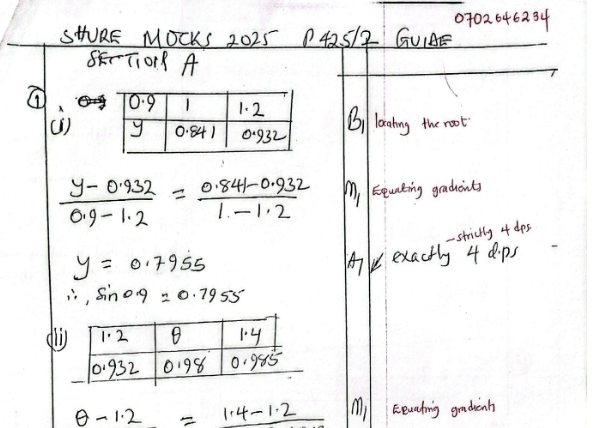 0702646234
SHURE MOCKS 2025 P425/2 GUIDE
SECTION A
1
(i) 0.9 1 1.2
y 0.841 0.932
B1 locating the root
y - 0.932 = 0.841 - 0.932
0.9 - 1.2 1. - 1.2
M1 Equating gradients
y = 0.7955
A1 exactly 4 d.ps
- strictly 4 dps
∴, sin 0.9 = 0.7955
(ii) 1.2 θ 1.4
0.932 0.98 0.985
θ - 1.2 = 1.4 - 1.2
M1 Equating gradients